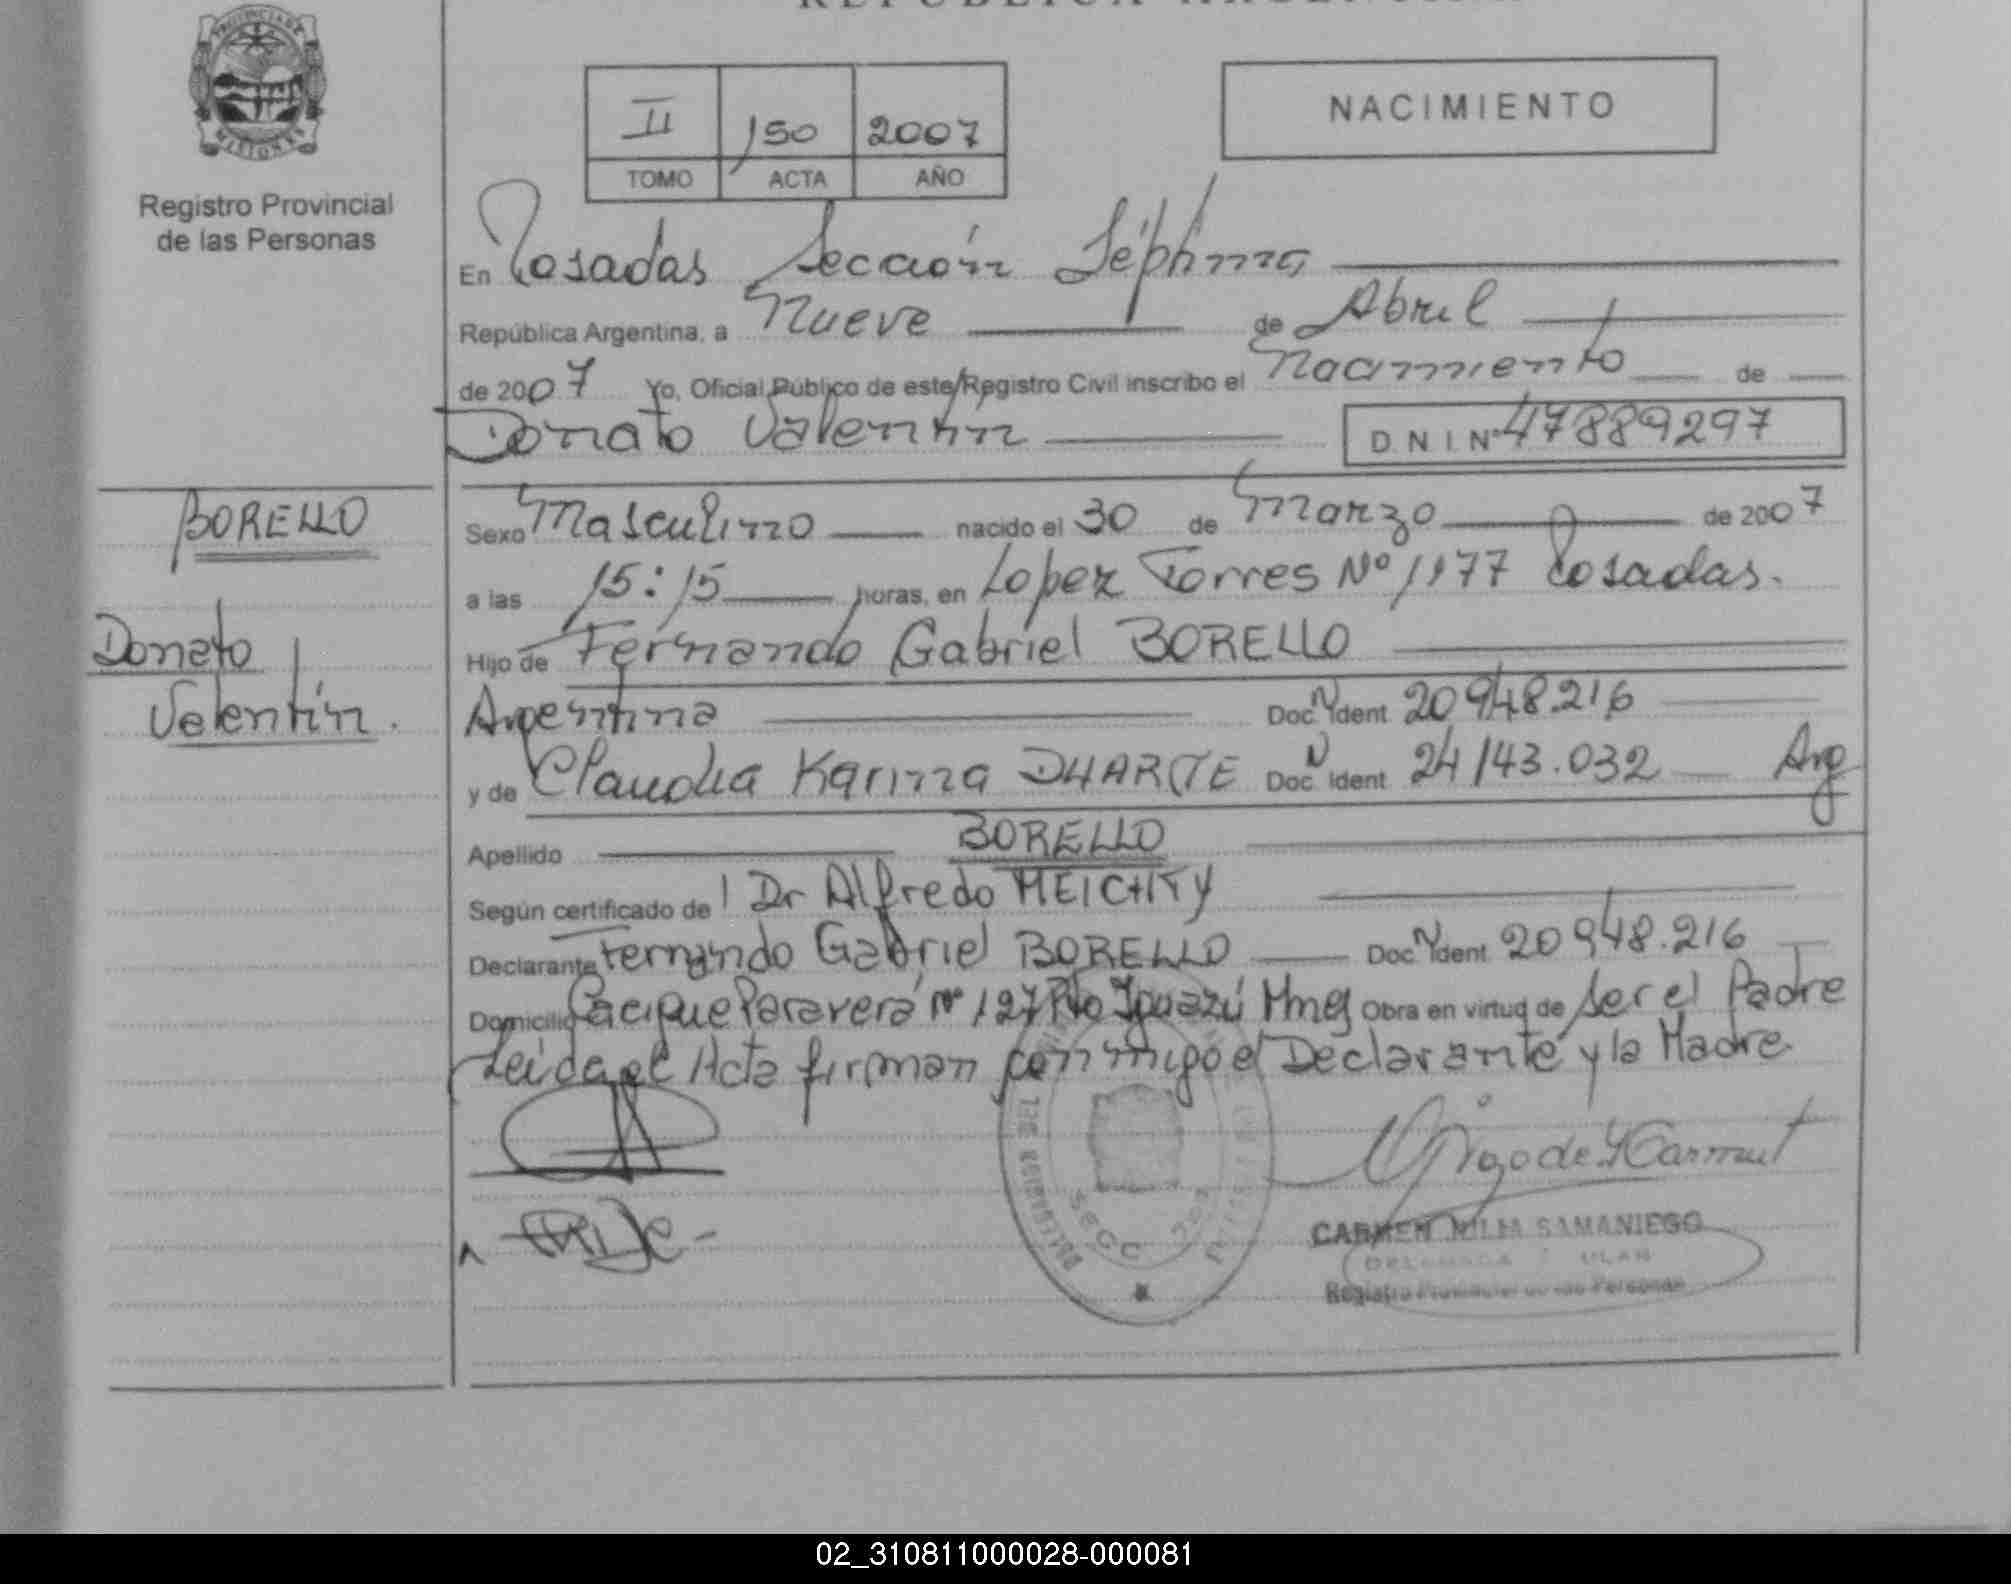 REPUBLICA ARGENTINA
PROVINCIA DE
MISIONES
Registro Provincial
de las Personas
II 150 2007
TOMO ACTA AÑO
NACIMIENTO
En Posadas Sección Séptima
República Argentina, a Nueve de Abril
de 2007 Yo, Oficial Público de este Registro Civil inscribo el Nacimiento de
Donato Valentín D.N.I. Nº 47889297
BORELLO
Donato
Valentín.
Sexo Masculino nacido el 30 de Marzo de 2007
a las 15:15 horas, en Lopez Torres Nº 1177 Posadas.
Hijo de Fernando Gabriel BORELLO
Argentina Doc. N Ident 20948.216
y de Claudia Karina DUARTE Doc. N Ident 24143.032 Arg
Apellido BORELLO
Según certificado de Dr Alfredo MEICHTRY
Declarante Fernando Gabriel BORELLO Doc. N Ident 20948.216
Domicilio Cacique Paraverá Nº 127 Pto Iguazú Mnes Obra en virtud de Ser el Padre
Leída el Acta firman conmigo el Declarante y la Madre
CARMEN SAMANIEGO
Registro Provincial de las Personas
02_310811000028-000081